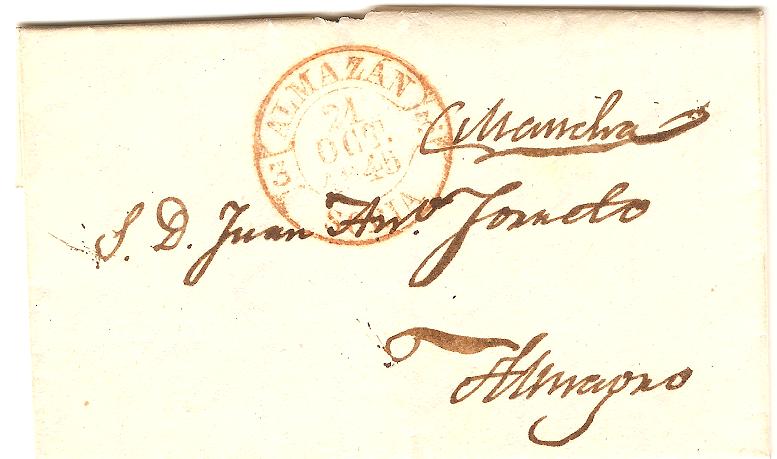 ALMAZÁN
21
OCT.
1845
SORIA
Mancha
S. D. Juan Anto.
Almagro